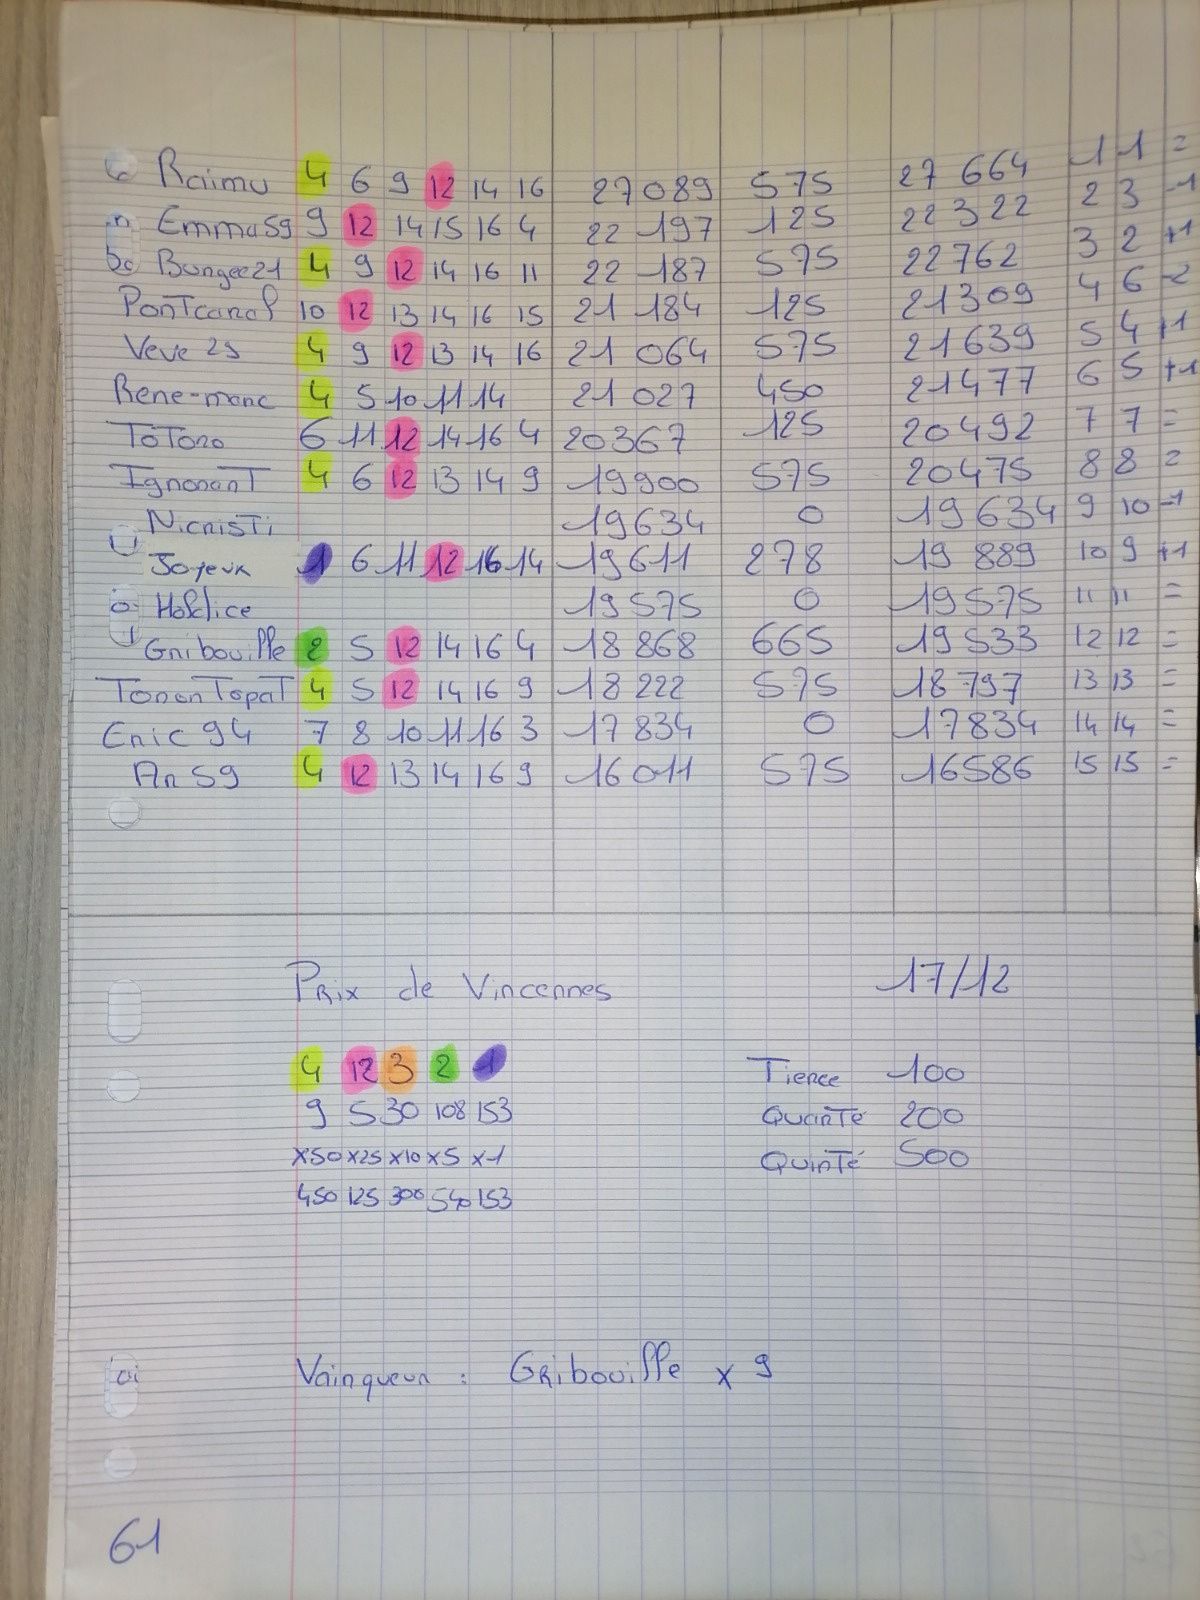 Raimu 4 6 9 12 14 16 27 089 575 27 664 1 1 =
Emma59 9 12 14 15 16 4 22 197 125 22 322 2 3 -1
Bungee21 4 9 12 14 16 11 22 187 575 22 762 3 2 +1
Pontcanal 10 12 13 14 16 15 21 184 125 21 309 4 6 -2
Veve 29 4 9 12 13 14 16 21 064 575 21 639 5 4 +1
Rene-marc 4 5 10 11 14 21 027 450 21 477 6 5 +1
ToToro 6 11 12 14 16 4 20367 125 20 492 7 7 =
IgnoranT 4 6 12 13 14 9 19 900 575 20 475 8 8 =
NicrisTi 19 634 0 19 634 9 10 -1
Joyeux 1 6 11 12 16 14 19 611 278 19 889 10 9 +1
Holdice 19 575 0 19 575 11 11 =
Gribouille 2 5 12 14 16 4 18 868 665 19 533 12 12 =
TononTopaT 4 5 12 14 16 9 18 222 575 18 797 13 13 =
Eric 94 7 8 10 11 16 3 17 834 0 17 834 14 14 =
An 59 4 12 13 14 16 9 16 011 575 16 586 15 15 =
Prix de Vincennes 17/12
4 12 3 2 1 Tierce 100
9 5 30 108 153 QuarTé 200
x50 x25 x10 x5 x1 QuinTé 500
450 125 300 540 153
Vainqueur : Gribouille x 9
61